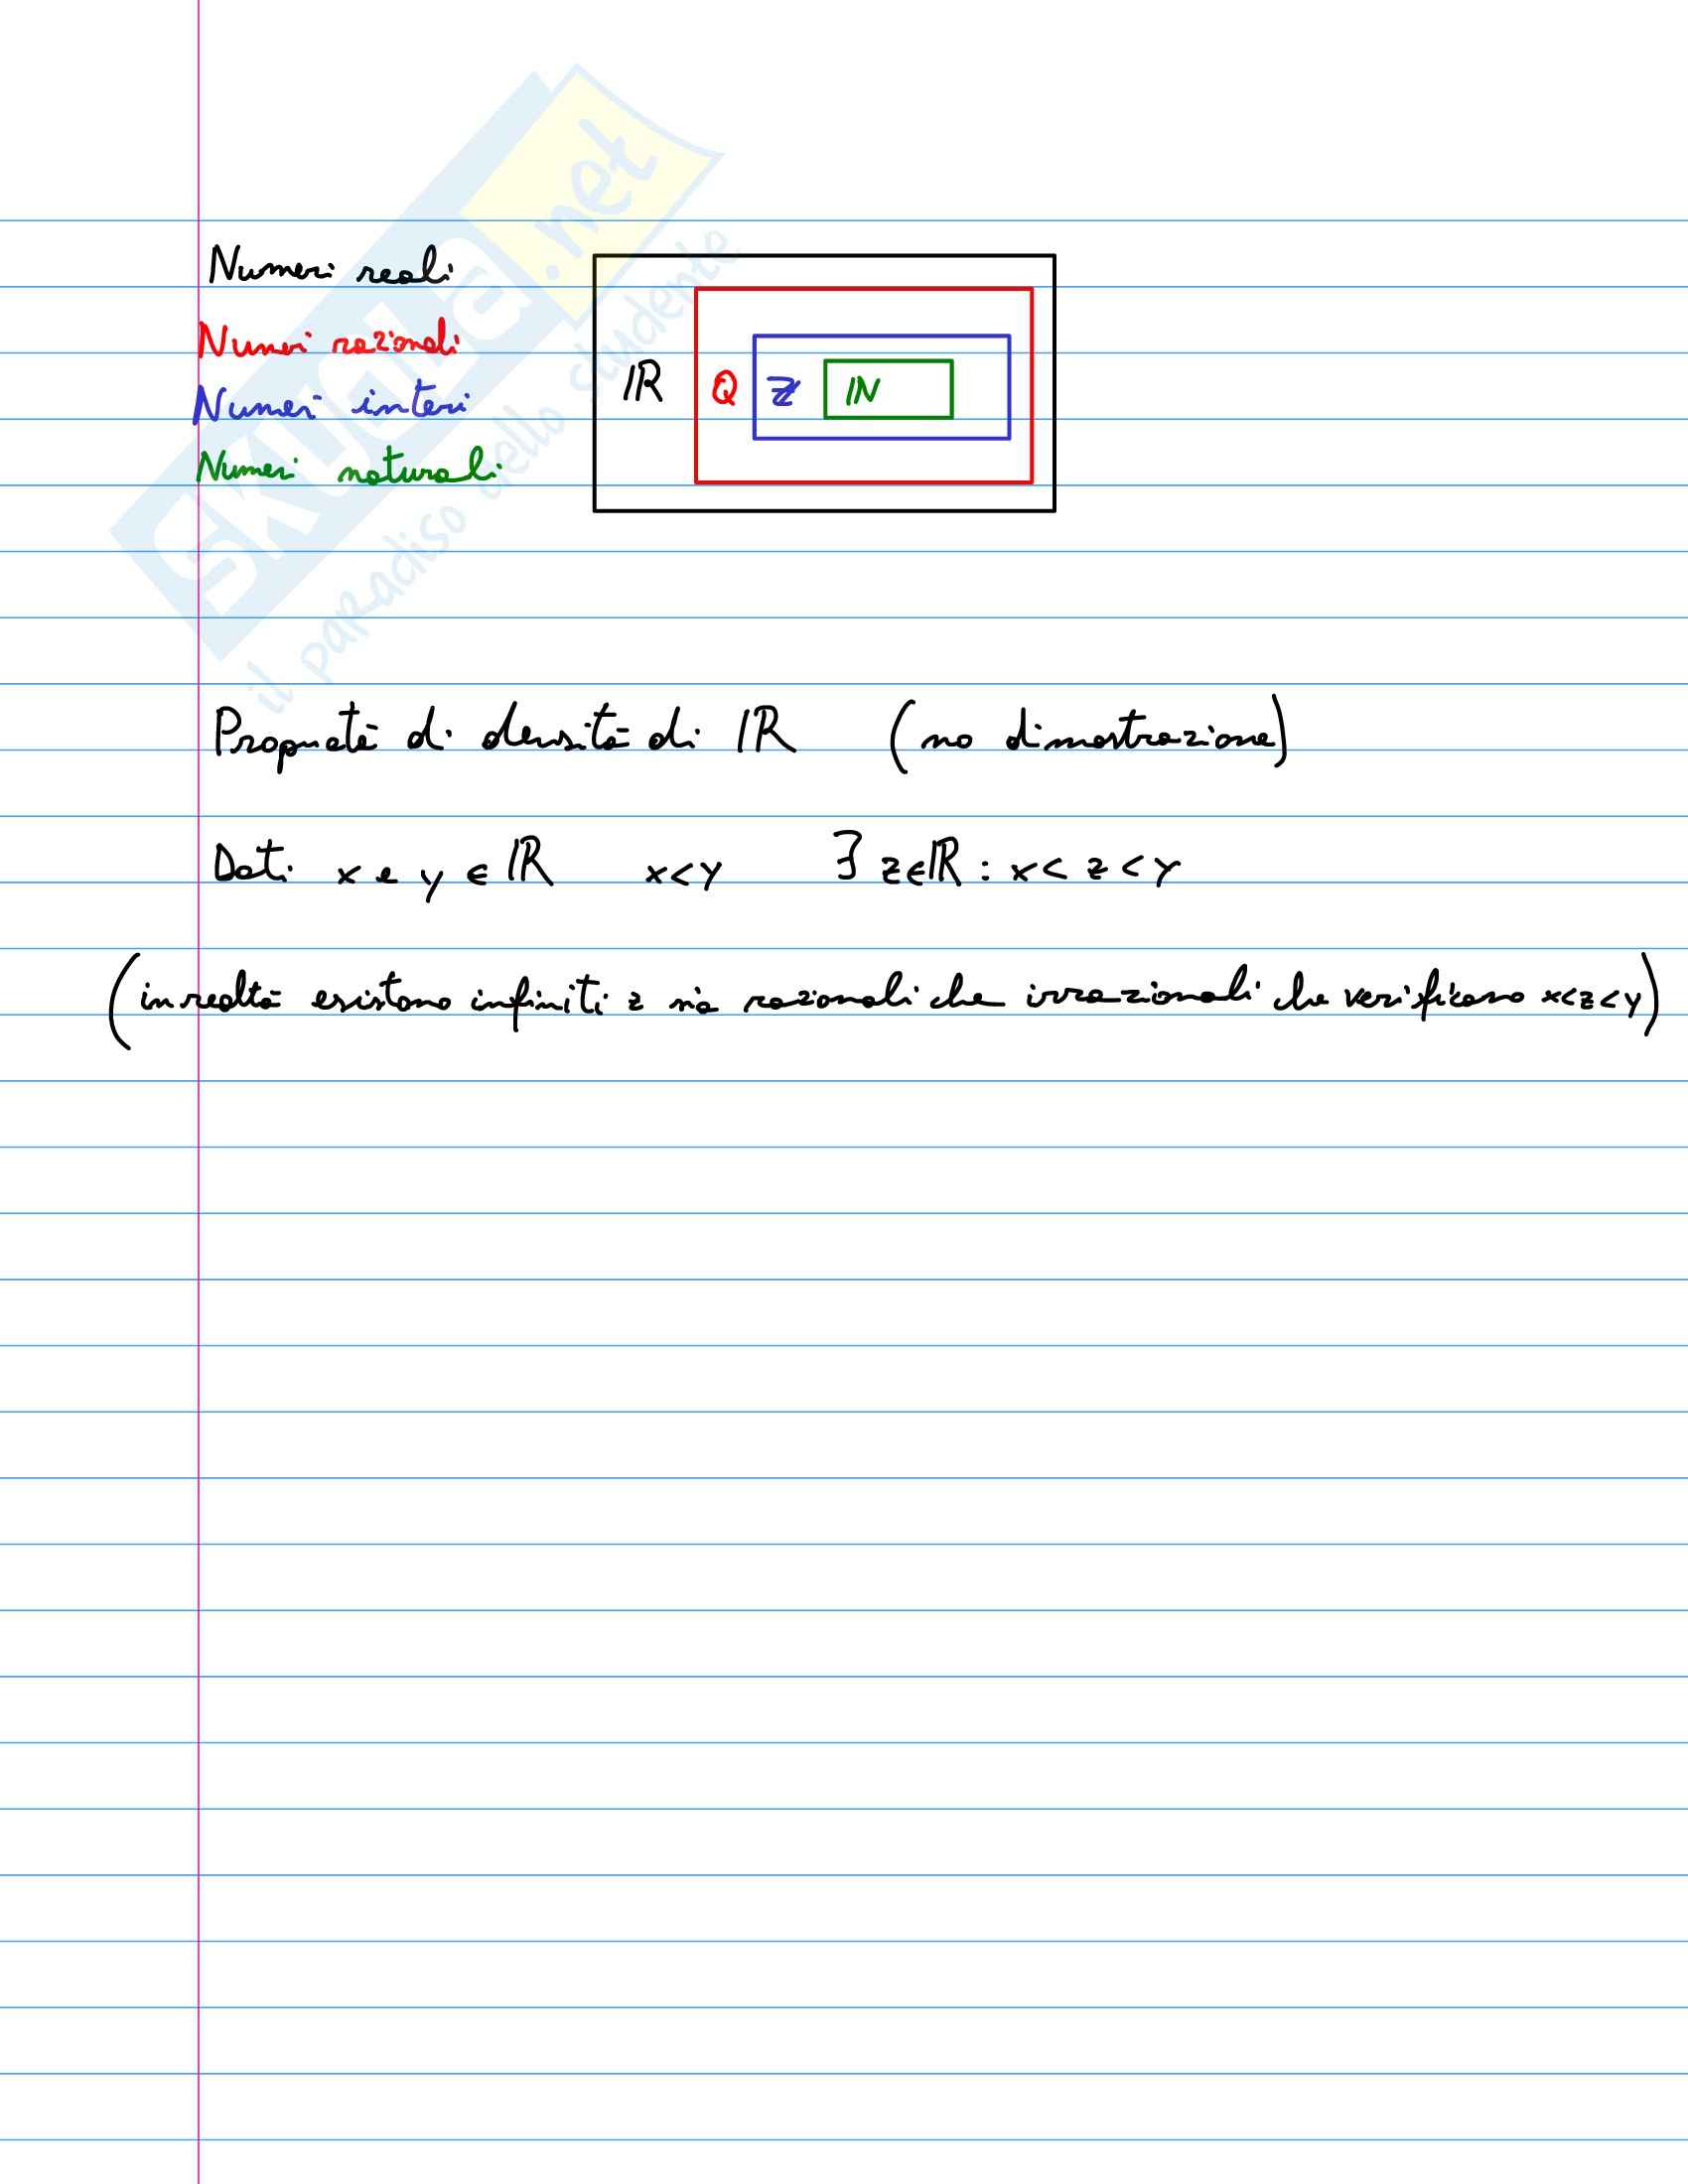 Numeri reali
Numeri razionali
Numeri interi
Numeri naturali
ℝ Q ℤ ℕ
Proprietà di densità di ℝ (no dimostrazione)
Dati x e y ∈ ℝ x<y ∃ z∈ℝ : x<z<y
(in realtà esistono infiniti z sia razionali che irrazionali che verificano x<z<y)
SKUOLA.net
il paradiso dello studente